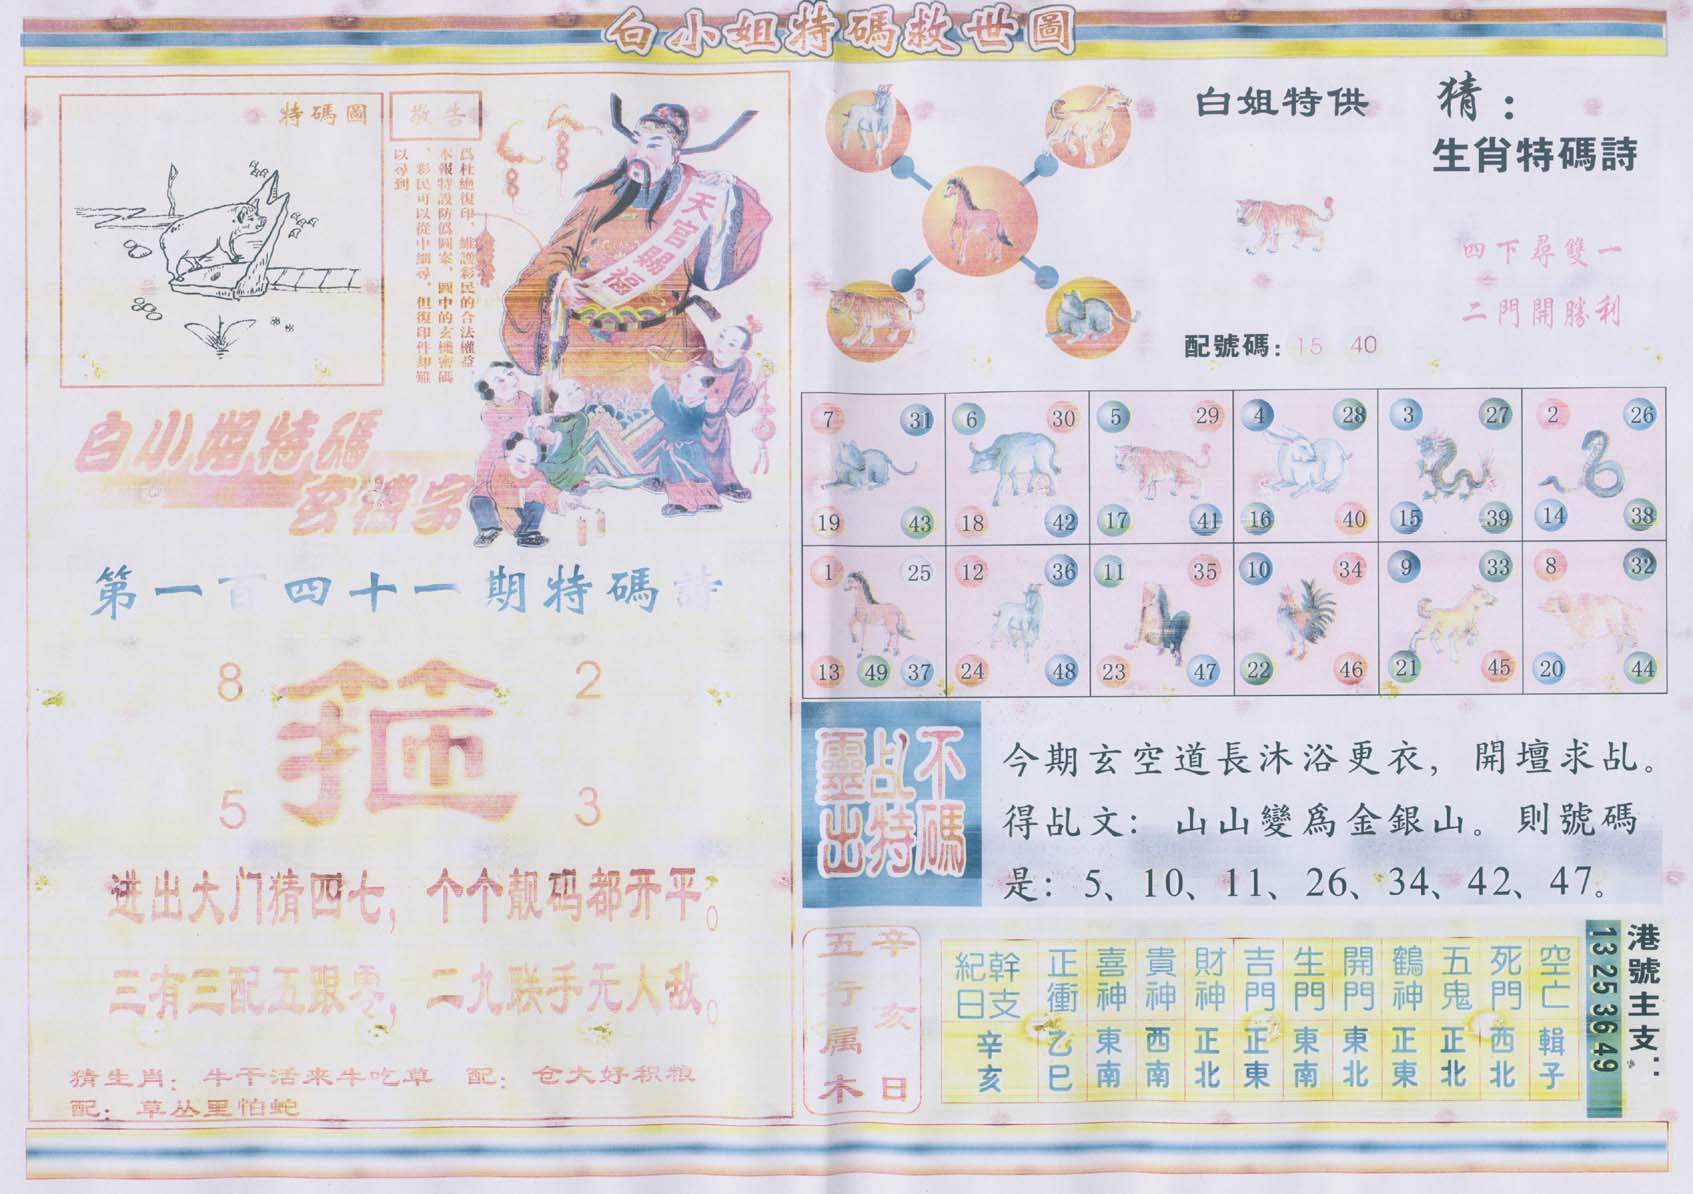 白小姐特碼救世圖
特碼圖
敬告
爲杜絶復印、維護彩民的合法權益，
本報特設防僞圖案，圖中的玄機密碼
，彩民可以從中細尋，但復印件却難
以尋到。
天官賜福
白小姐特碼
玄機字
第一百四十一期特碼詩
8 2
箍
5 3
进出大门猜四七，个个靓码都开平。
三有三配五跟零，二九联手无人敌。
猜生肖：牛干活来牛吃草 配：仓大好积粮
配：草丛里怕蛇
白姐特供
配號碼：15 40
猜：
生肖特碼詩
四下尋雙一
二門開勝利
7 31 6 30 5 29 4 28 3 27 2 26
19 43 18 42 17 41 16 40 15 39 14 38
1 25 12 36 11 35 10 34 9 33 8 32
13 49 37 24 48 23 47 22 46 21 45 20 44
不碼
乩特
靈出
今期玄空道長沐浴更衣，開壇求乩。
得乩文：山山變爲金銀山。則號碼
是：5、10、11、26、34、42、47。
辛亥日
五行属木
幹支紀日 正衝 喜神 貴神 財神 吉門 生門 開門 鶴神 五鬼 死門 空亡
辛亥 乙巳 東南 西南 正北 正東 東南 東北 正東 正北 西北 輯子
港號主支：
13 25 36 49